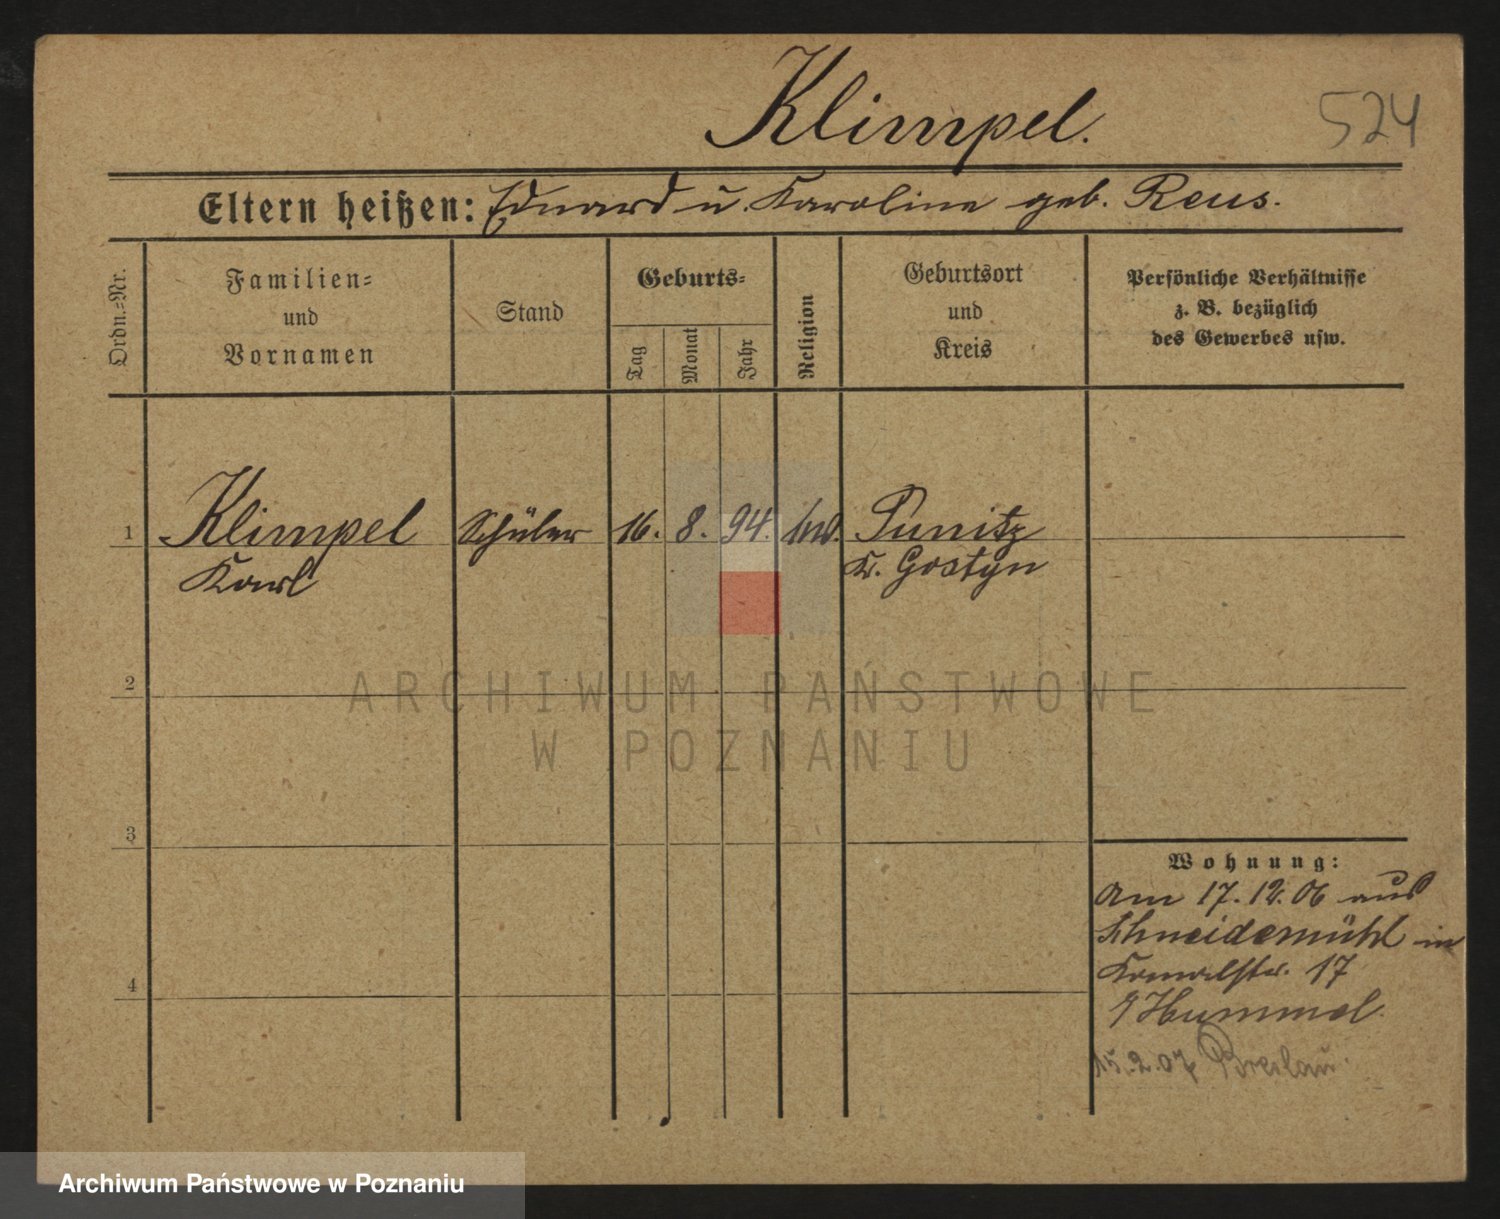 Klimpel.
524
Eltern heißen: Eduard u. Karoline geb. Reus.
Ordn.-Nr.
Familien-
und
Vornamen
Stand
Geburts-
Tag
Monat
Jahr
Religion
Geburtsort
und
Kreis
Persönliche Verhältnisse
z. B. bezüglich
des Gewerbes usw.
1 Klimpel Schüler 16. 8. 94. Punitz
Karl Kr. Gostyn
2
3
4
Wohnung:
Am 17.12.06 aus
Schneidemühl in
Kanalstr. 17
b/Hummel.
15.2.07 Breslau.
ARCHIWUM PAŃSTWOWE
W POZNANIU
Archiwum Państwowe w Poznaniu